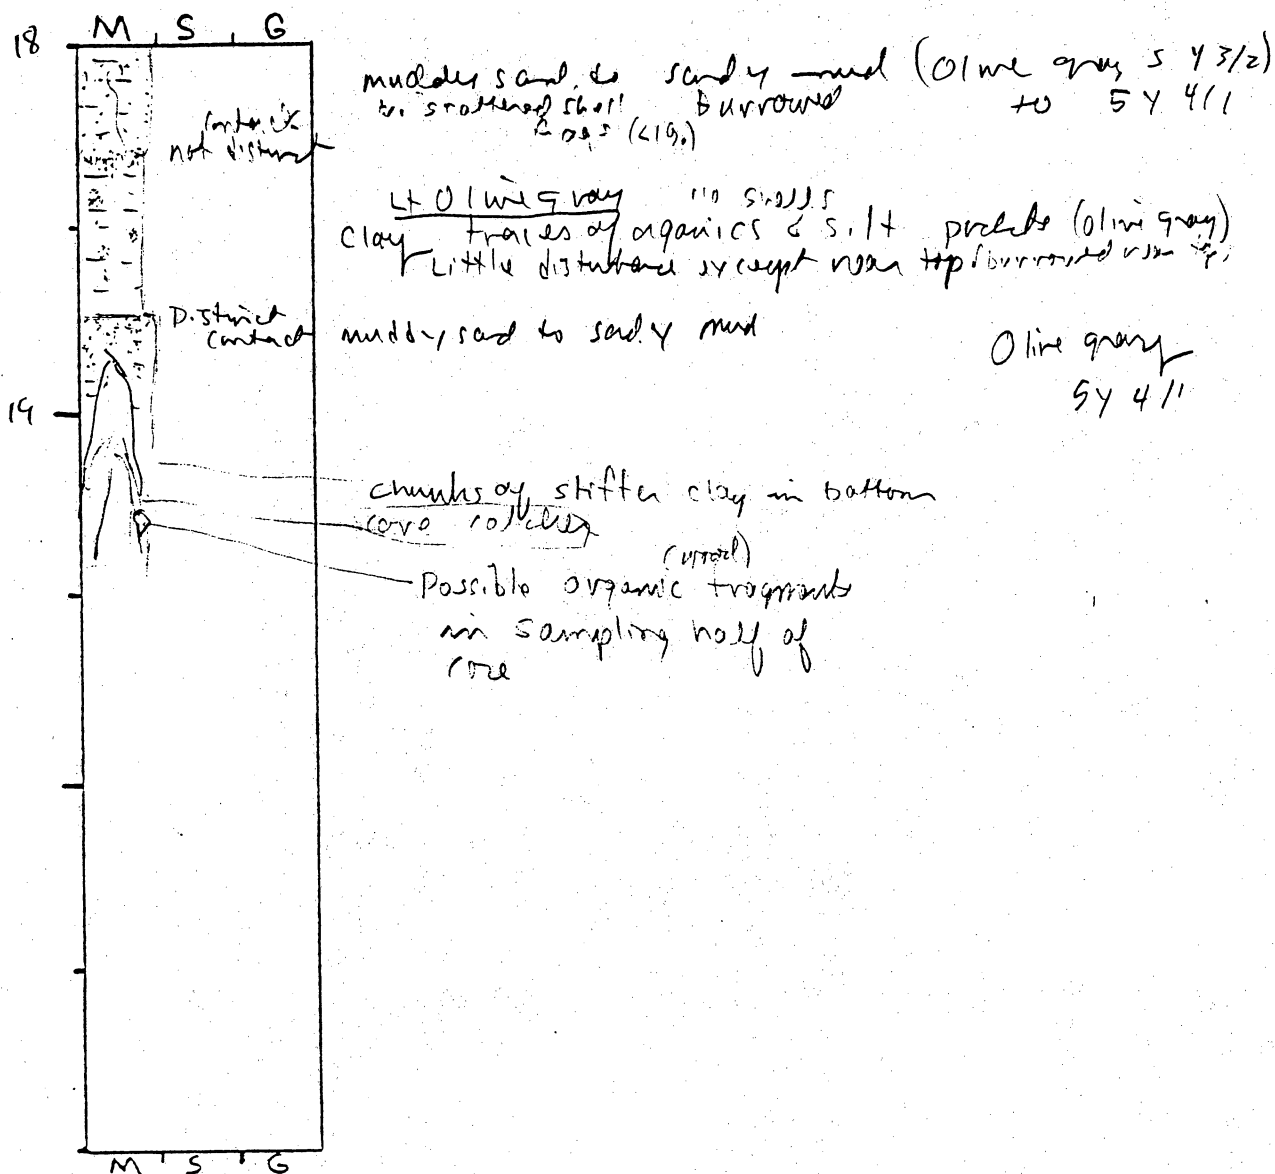 M S G
18
muddy sand to sandy mud (Olive gray 5 Y 3/2)
w. scattered shell burrowed to 5Y 4/1
frags (<1%)
Contact
not distinct
Lt Olive gray no shells
Clay traces of organics & silt pockets (Olive gray)
Little disturbance except near top/burrowed near top
Distinct
contact muddy sand to sandy mud
Olive gray
5Y 4/1
19
chunks of stiffer clay in bottom
core catcher
(wood)
Possible organic fragments
in sampling half of
core
M S G